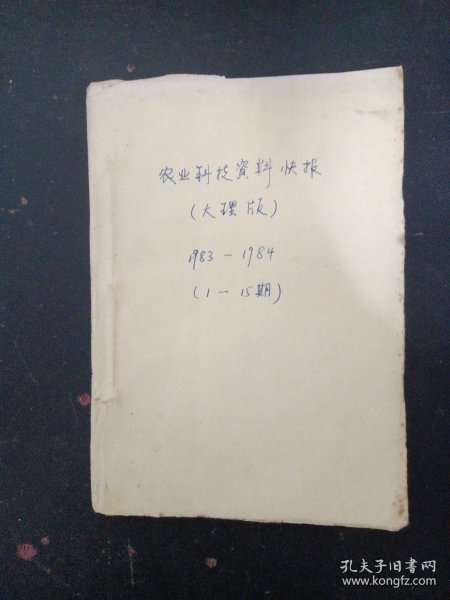 农业科技資料快报
(大理版)
1983-1984
(1-15期)
孔夫子旧书网
www.kongfz.com